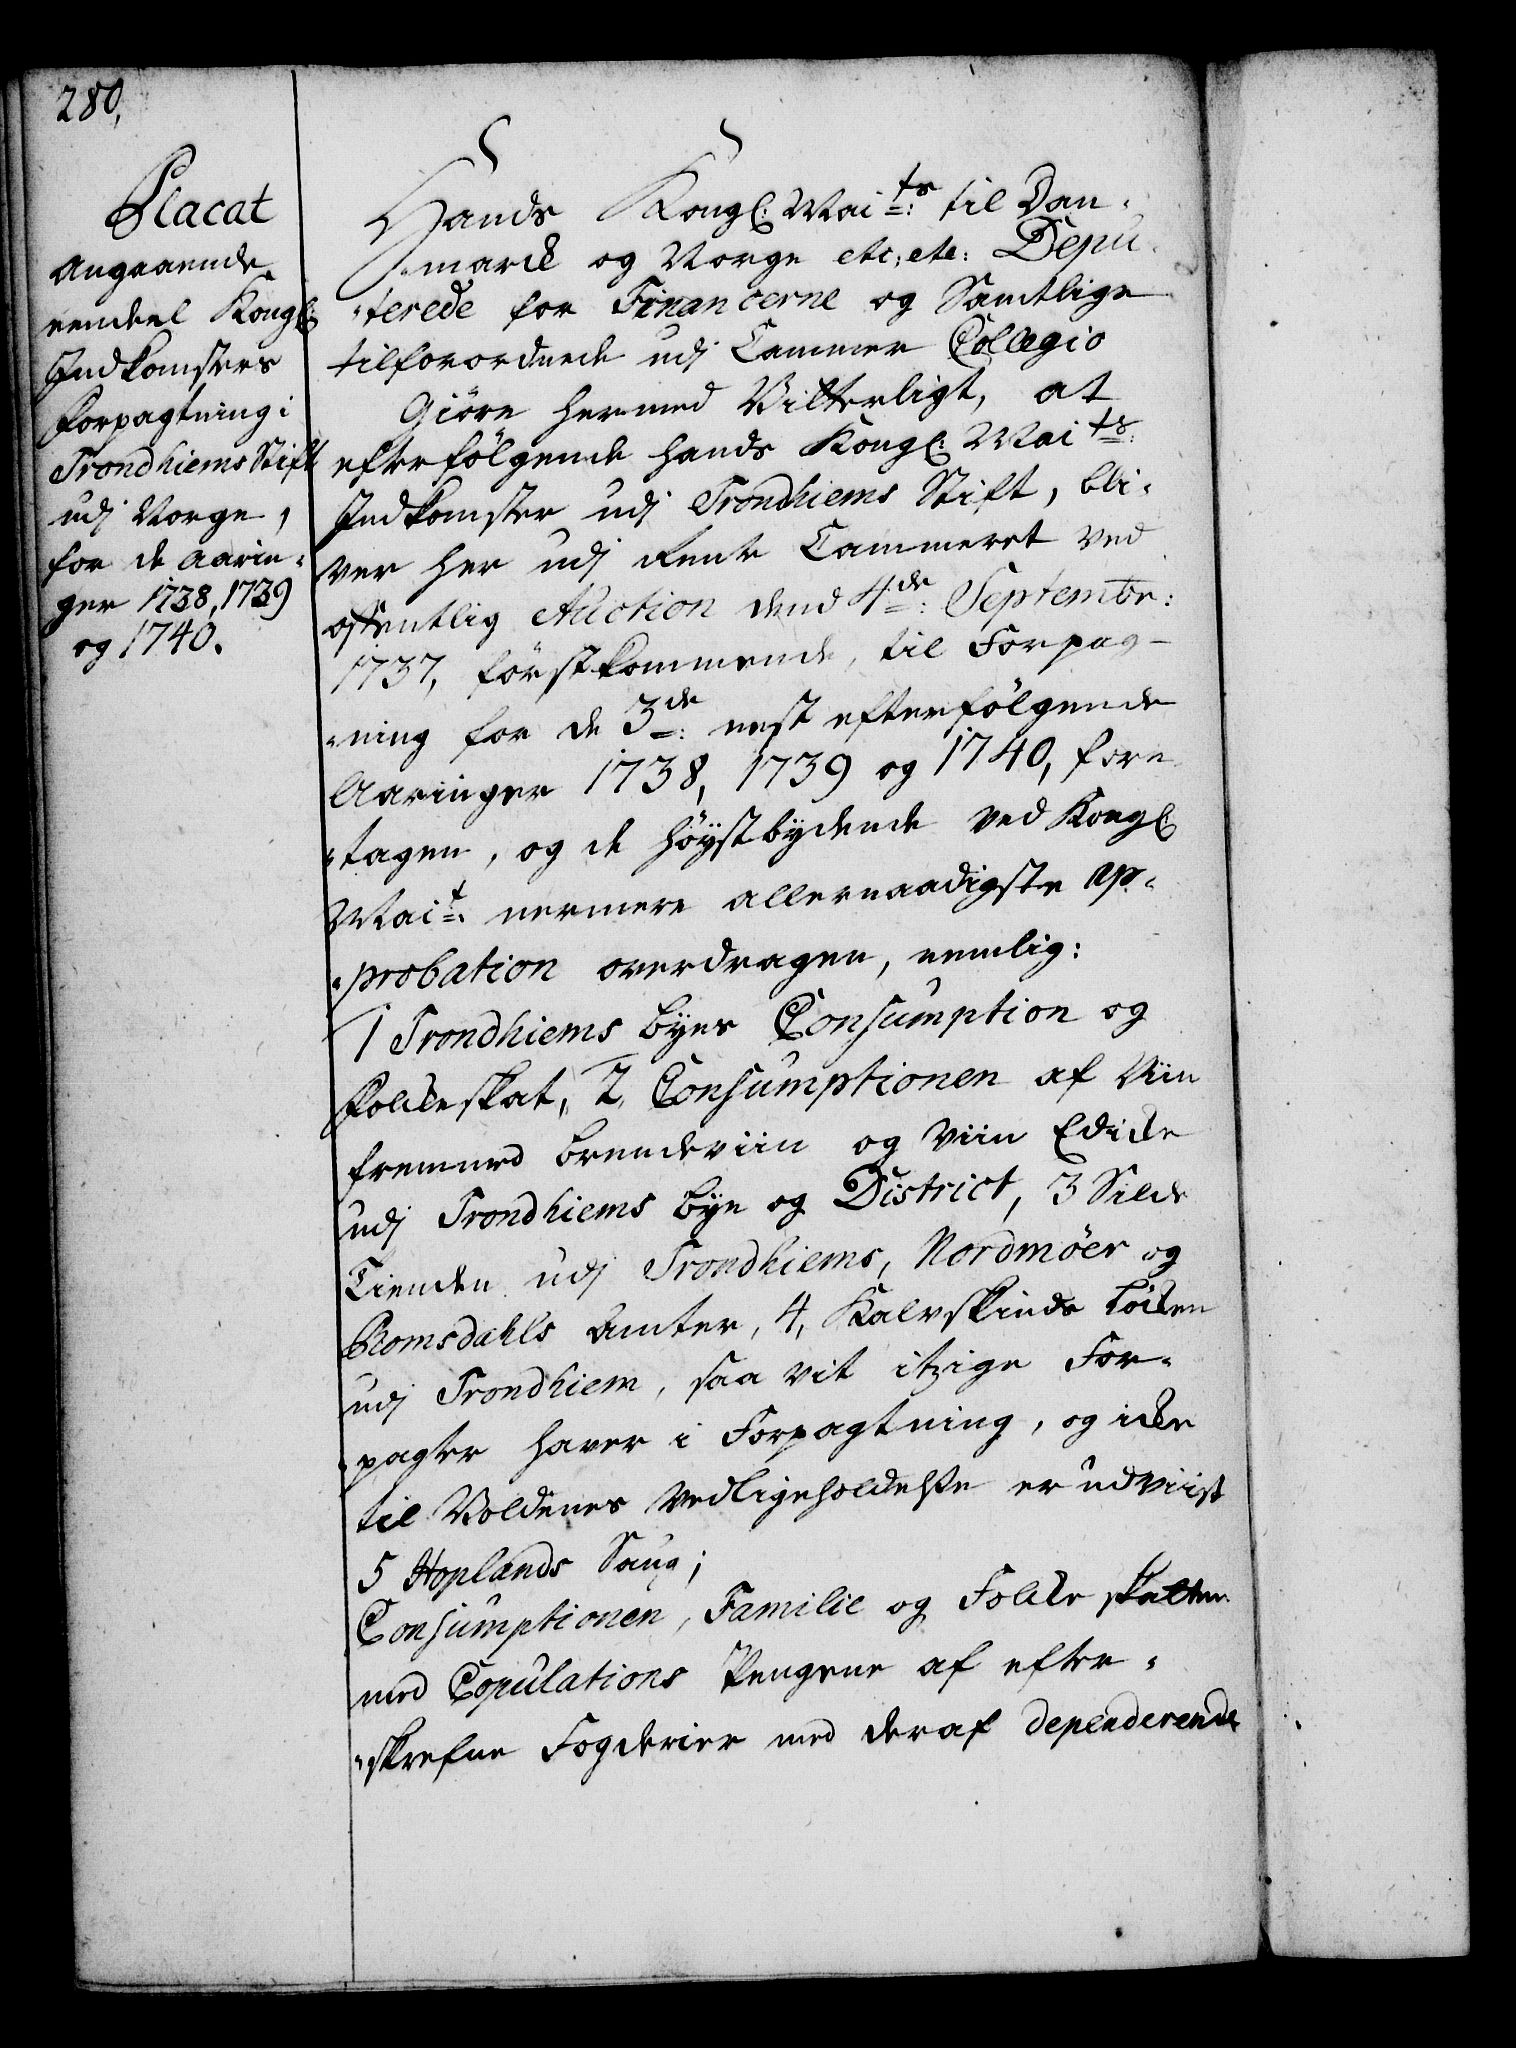 280,
Placat
Angaaende
eendeel Kongl:
Indkomsters
forpagtning i
Trondhiems Stift
udj Norge,
for de Aarin-
ger 1738, 1739
og 1740.
Hands Kongl: Mai:ts til Dan-
-marck og Norge etc: etc: Depu-
-terede for Financerne og Samtlige
tilforordnede udj Cammer Collegio
Giöre hermed Vitterligt, at
efterfölgende hands Kongl: Mai:ts
Indkomster udj Trondhiems Stift, bli-
ver her udj Rente Cammeret ved
offentlig Auction dend 4de: Septembr:
1737, förstkommende, til Forpag-
-ning for de 3de: nest efterfölgende
Aaringer 1738, 1739 og 1740, fore
-tagen, og de höystbydende ved Kongl:
Mai:t nermere allernaadigste Ap-
-probation overdragen, nemlig:
1 Trondhiems byes Consumption og
Folkeskat, 2, Consumptionen af Viin
fremmed brendeviin og Viin Edicke
udj Trondhiems bye og District, 3 Silde
Tienden udj Trondhiems, Nordmöer og
Romsdahls Amter, 4, Kalvskinds Löcken
udj Trondhiem, saa vit itzige For-
-pagter haver i Forpagtning, og icke
til Voldenes Vedligeholdelse er udviist
5 Hoplands Saug;
Consumptionen, Familie og Folke skatten
med Copulations Pengene af efter-
-skrefne Fogderier med deraf dependerende